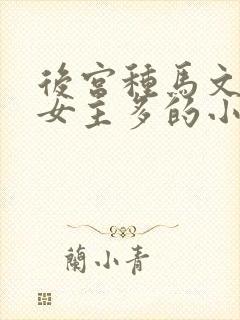 後宮種馬文
女主多的小
蘭小青